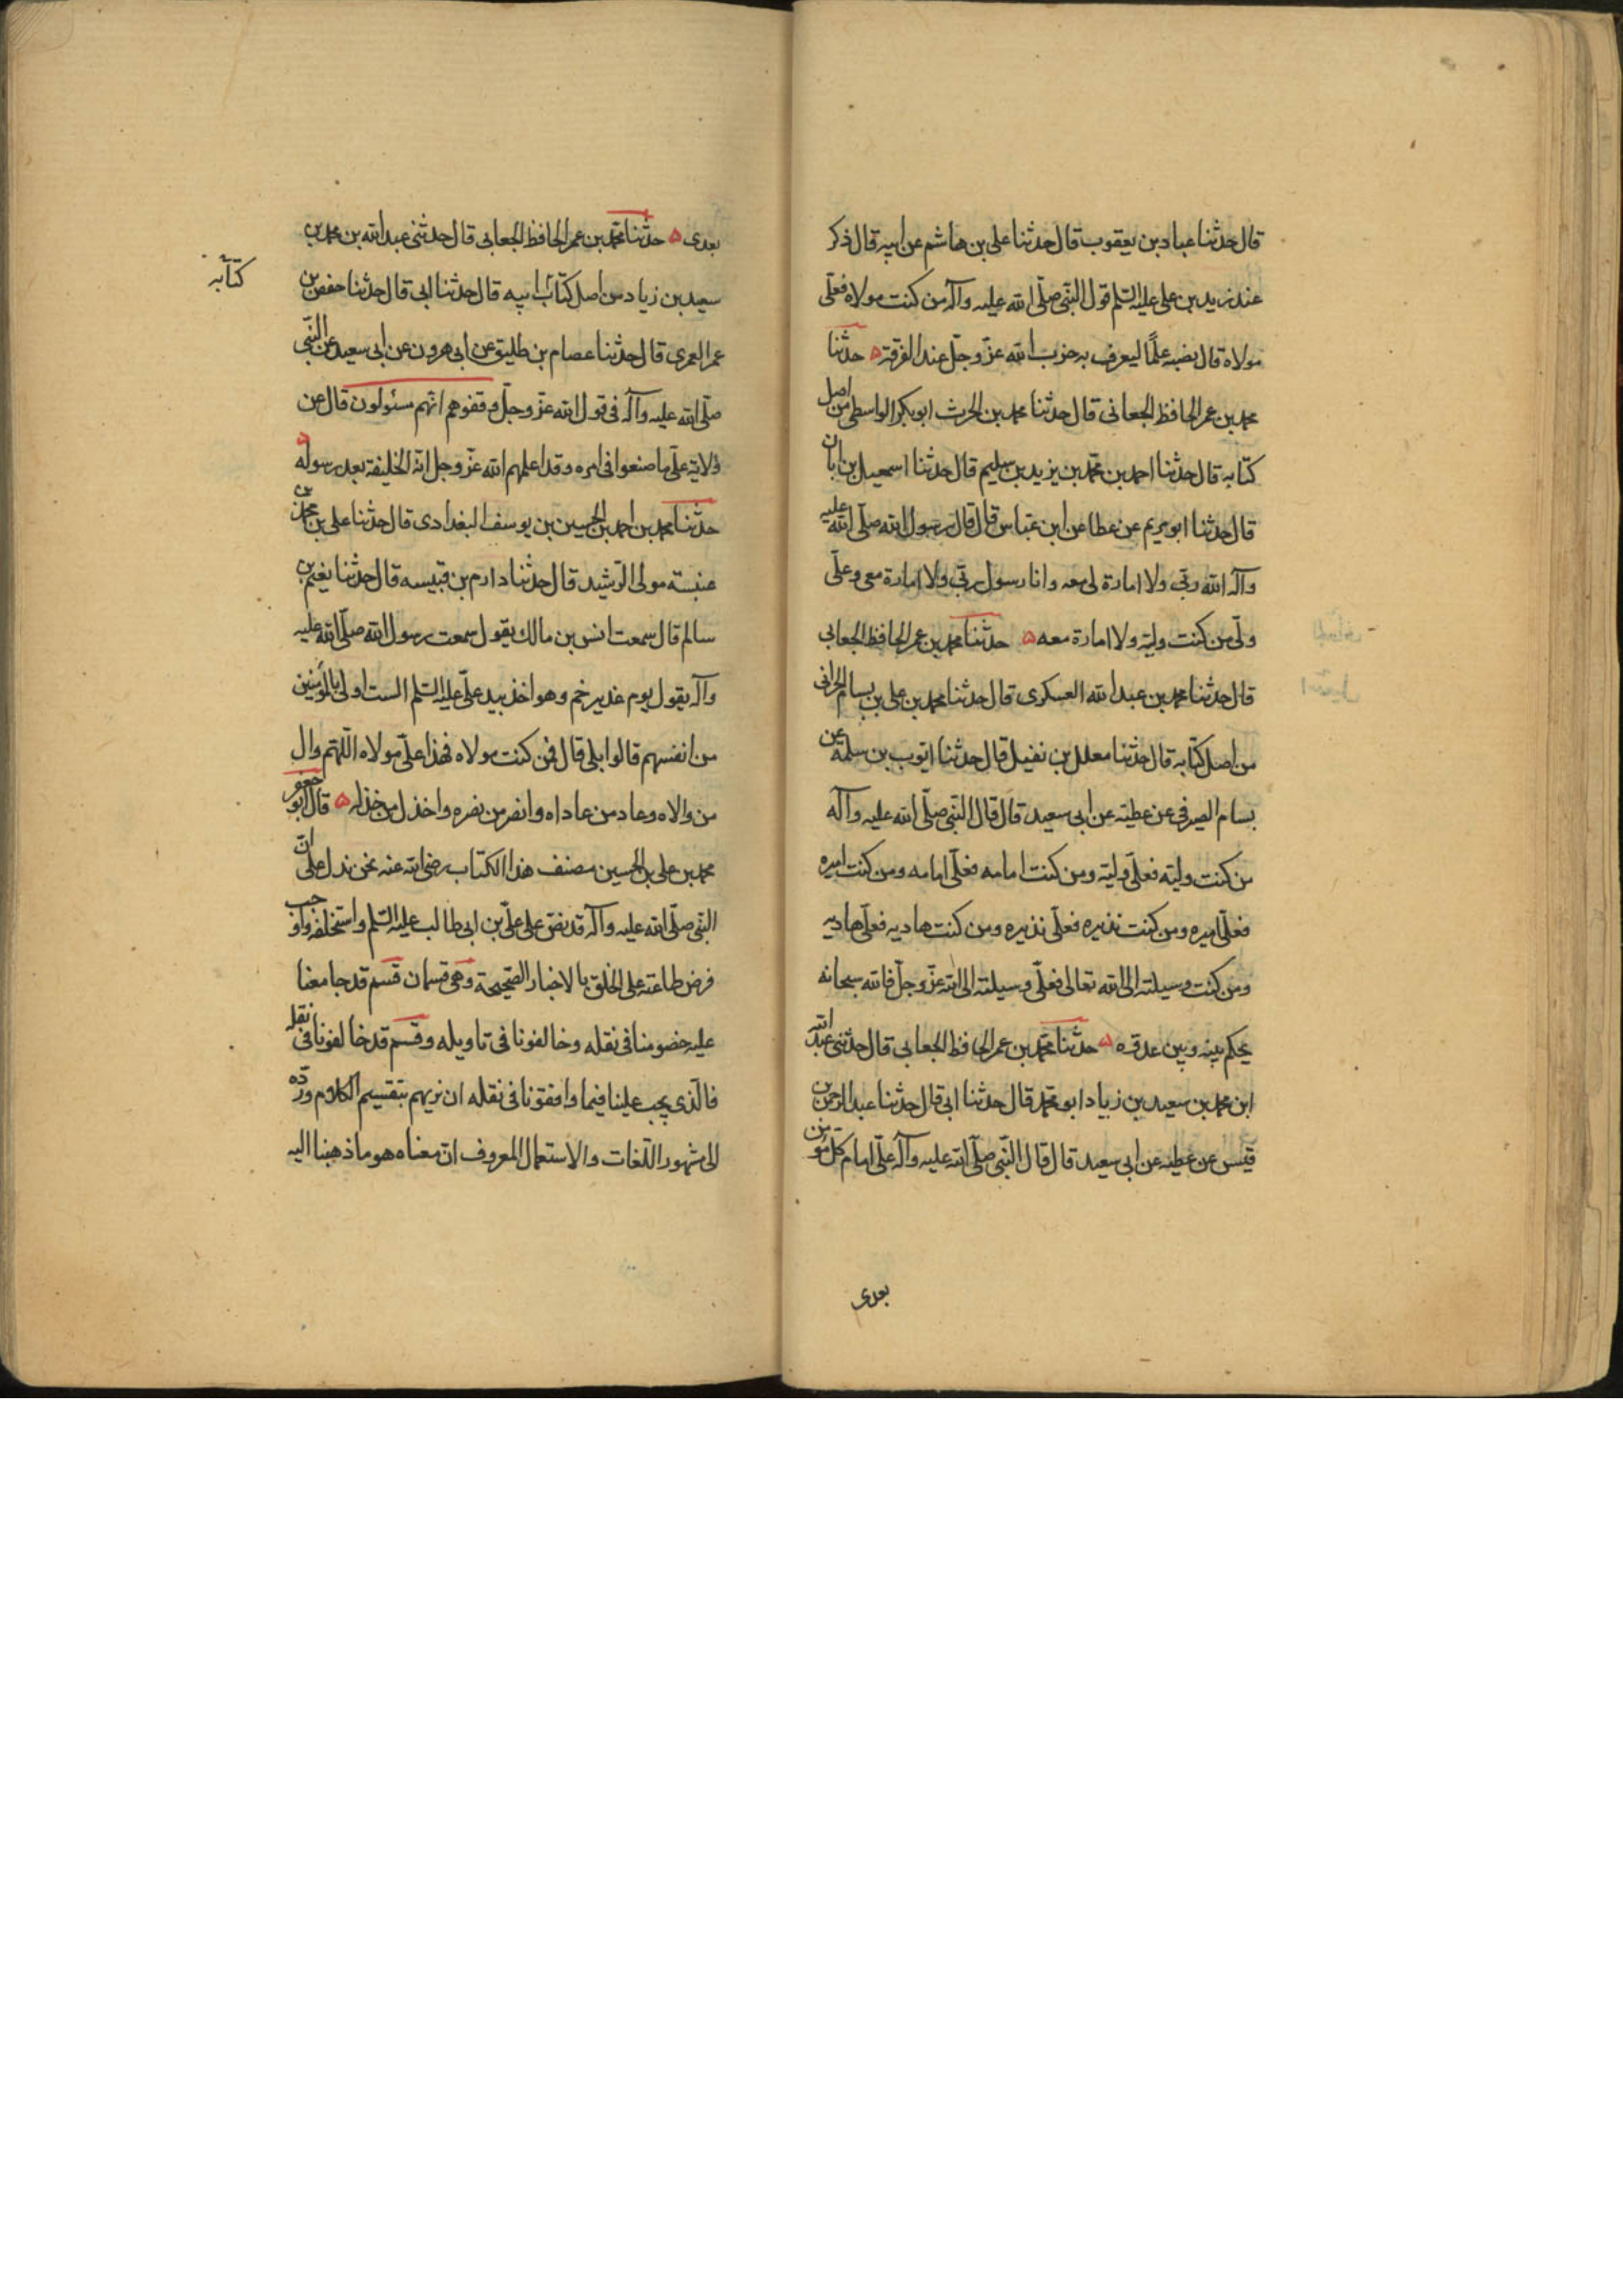 قال حدثنا عباد بن يعقوب قال حدثنا علي بن هاشم عن ابيه قال ذكر
عند زيد بن علي عليه السلم قول النبي صلى الله عليه وآله من كنت مولاه فعلي
مولاه قال نصبه علمًا ليعرف به حزب الله عزّ وجلّ عند الفرقة ه حدثنا
محمد بن عمر الحافظ الجعابي قال حدثنا محمد بن الحرث ابو بكر الواسطي من اصل
كتابه قال حدثنا احمد بن محمد بن يزيد بن سليم قال حدثنا اسمعيل بن ابان
قال حدثنا ابو مريم عن عطا عن ابن عباس قال قال رسول الله صلى الله عليه
وآله الله ربي ولا امارة لي معه وانا رسول ربي ولا امارة معي وعلي
ولي من كنت وليه ولا امارة معه ه حدثنا محمد بن عمر الحافظ الجعابي
قال حدثنا محمد بن عبد الله العسكري قال حدثنا محمد بن علي بن بسام الحراني
من اصل كتابه قال حدثنا معلل بن نفيل قال حدثنا ايوب بن سلمة عن
بسام الصيرفي عن عطية عن ابي سعيد قال قال النبي صلى الله عليه وآله
من كنت وليه فعلي وليه ومن كنت امامه فعلي امامه ومن كنت اميره
فعلي اميره ومن كنت نذيره فعلي نذيره ومن كنت هاديه فعلي هاديه
ومن كنت وسيلته الى الله تعالى فعلي وسيلته الى الله عزّ وجلّ فالله سبحانه
يحكم بينه وبين عدوه ه حدثنا محمد بن عمر الحافظ الجعابي قال حدثني عبد الله
ابن محمد بن سعيد بن زياد ابو محمد قال حدثنا ابي قال حدثنا عبد الرحمن بن
قيس عن عطيه عن ابي سعيد قال قال النبي صلى الله عليه وآله علي امام كل مؤمن
بعدي
بعدي ه حدثنا محمد بن عمر الحافظ الجعابي قال حدثني عبد الله بن محمد بن
سعيد بن زياد من اصل كتاب ابيه قال حدثنا ابي قال حدثنا حفص بن
كتابه
عمر العمري قال حدثنا عصام بن طليق عن ابي هرون عن ابي سعيد عن النبي
صلى الله عليه وآله في قول الله عزّ وجلّ وقفوهم انهم مسئولون قال عن
ولاية علي ما صنعوا في امره وقد اعلمهم الله عزّ وجل انه الخليفة بعد رسوله ه
حدثنا محمد بن احمد بن الحسين بن يوسف البغدادي قال حدثنا علي بن محمد بن
عنبسة مولى الرشيد قال حدثنا دارم بن قبيسه قال حدثنا نعيم بن
سالم قال سمعت انس بن مالك يقول سمعت رسول الله صلى الله عليه
وآله يقول يوم غدير خم وهو اخذ بيد علي عليه السلم الست اولى بالمؤمنين
من انفسهم قالوا بلى قال فمن كنت مولاه فهذا علي مولاه اللهم وال
من والاه وعاد من عاداه وانصر من نصره واخذل من خذله ه قال ابو جعفر
محمد بن علي بن الحسين مصنف هذا الكتاب رضي الله عنه نحن ندل على ان
النبي صلى الله عليه وآله قد نص على علي بن ابي طالب عليه السلم واستخلفه واوجب
فرض طاعته على الخلق بالاخبار الصحيحة وهي قسمان قسم قد جامعنا
عليه خصومنا في نقله وخالفونا في تاويله وقسم قد خالفونا في نقله
فالذي يجب علينا فيما وافقونا في نقله ان نريهم بتقسيم الكلام ورده
الى مشهور اللغات والاستعمال المعروف ان معناه هو ما ذهبنا اليه